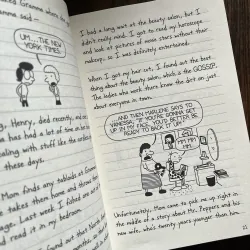 Gramma where
anna said —
UM... THE NEW
YORK TIMES.
, Henry, died recently, and
has had a lot of time on
aling with stuff like the
these days.
Mom finds any tabloids at Gramma
e takes them home and
age. Last week I fished one
d read it in my bedroom.
found out that North
I had a long wait at the beauty salon, but I
didn't really mind. I got to read my horoscope
and look at pictures of movie stars without their
makeup, so I was definitely entertained.
When I got my hair cut, I found out the best
thing about the beauty salon, which is the GOSSIP.
The ladies who work there know the dirt on just
about everyone in town.
...AND THEN MARLENE SAYS TO
VANESSA, "IF YOU'RE GONNA GET
UP IN MY FACE, YOU'D BETTER BE
READY TO BACK IT UP!"
Unfortunately, Mom came to pick me up right in
the middle of a story about Mr. Peppers and his
new wife, who's twenty years younger than him.